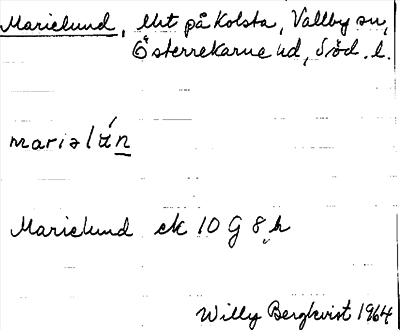 Marielund, lht på Kolsta, Vallby sn,
Österrekarne hd, Söd. l.
mariəlún
Marielund ek 10 G 8 h
Willy Bergkvist 1964